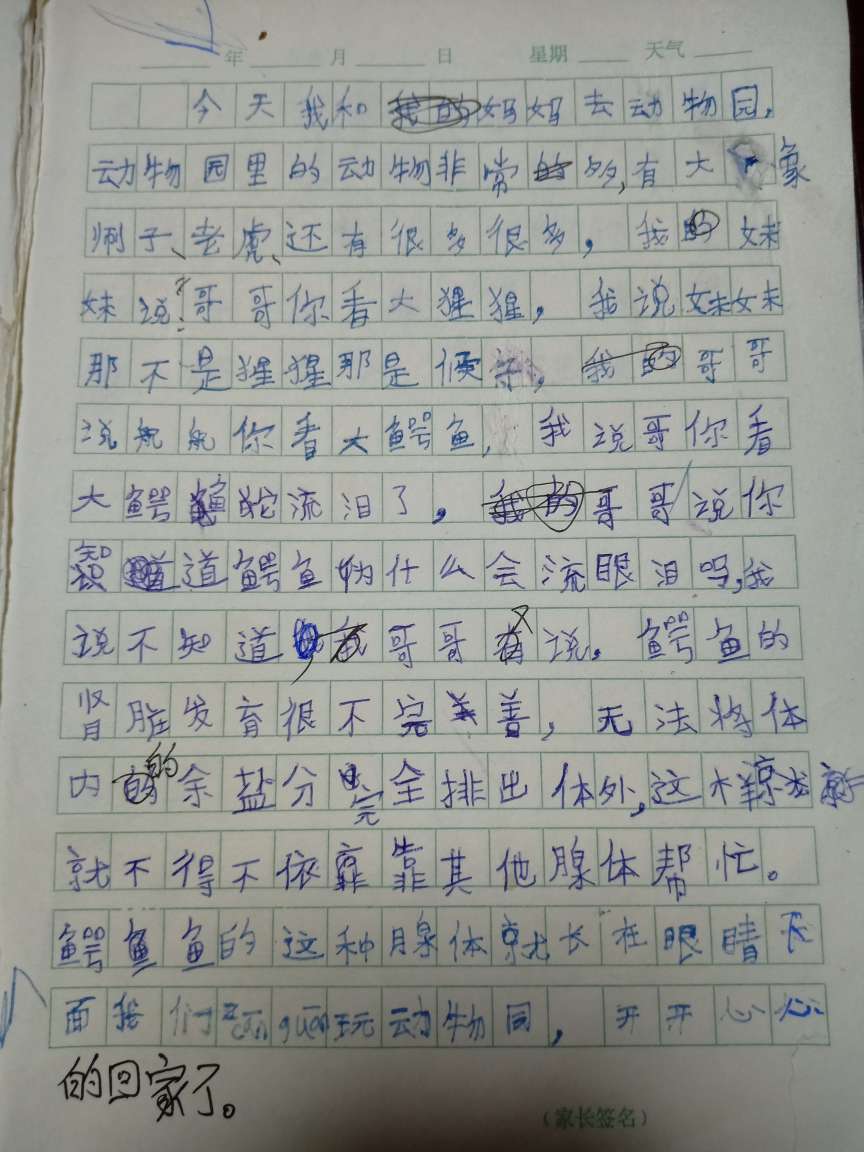 年 月 日 星期 天气
今天我和妈妈去动物园，
动物园里的动物非常多，有大象
狮子、老虎、还有很多很多，我妹
妹说：哥哥你看大猩猩，我说妹妹
那不是猩猩那是猴子，哥哥
说航航你看大鳄鱼，我说哥你看
大鳄鱼它流泪了，哥哥说你
知道鳄鱼为什么会流眼泪吗，我
说不知道哥哥说。鳄鱼的
肾脏发育很不完善，无法将体
内的余盐分完全排出体外，这样
就不得不依靠其他腺体帮忙。
鳄鱼的这种腺体就长在眼睛下
面我们cān guān玩动物园，开开心心
的回家了。
（家长签名）